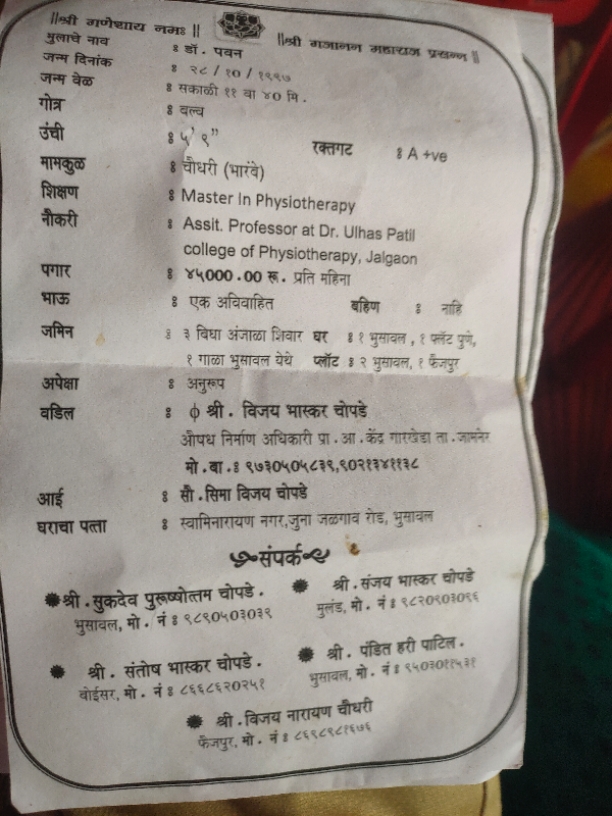 ||श्री गणेशाय नमः||
||श्री गजानन महाराज प्रसन्न||
मुलाचे नाव : डॉ. पवन
जन्म दिनांक : २८/१०/१९९७
जन्म वेळ : सकाळी ११ वा ४० मि.
गोत्र : वत्स
उंची : ५' ९" रक्तगट : A +ve
मामकुळ : चौधरी (भारंबे)
शिक्षण : Master In Physiotherapy
नौकरी : Assit. Professor at Dr. Ulhas Patil
college of Physiotherapy, Jalgaon
पगार : ४५०००.०० रू. प्रति महिना
भाऊ : एक अविवाहित बहिण : नाहि
जमिन : ३ विघा अंजाळा शिवार घर : १ भुसावल , १ फ्लॅट पुणे,
१ गाळा भुसावल येथे प्लॉट : २ भुसावल, १ फैजपुर
अपेक्षा : अनुरूप
वडिल : ϕ श्री. विजय भास्कर चोपडे
औषध निर्माण अधिकारी प्रा.आ.केंद्र गारखेडा ता.जामनेर
मो.बा.: ९७३०५०५८३९,९०२१३४११३८
आई : सौ.सिमा विजय चोपडे
घराचा पत्ता : स्वामिनारायण नगर,जुना जळगाव रोड, भुसावल
संपर्क
श्री.सुकदेव पुरूष्षोत्तम चोपडे.
भुसावल, मो. नं : ९८९०५०३०३९
श्री.संजय भास्कर चोपडे
मुलंड, मो. नं : ९८२०९०३०९६
श्री. संतोष भास्कर चोपडे.
बोईसर, मो. नं : ८६६८६२०२५१
श्री. पंडित हरी पाटिल.
भुसावल, मो. नं : ९५०३०११५३१
श्री.विजय नारायण चौधरी
फैजपुर, मो. नं : ८६९८९८१६७६